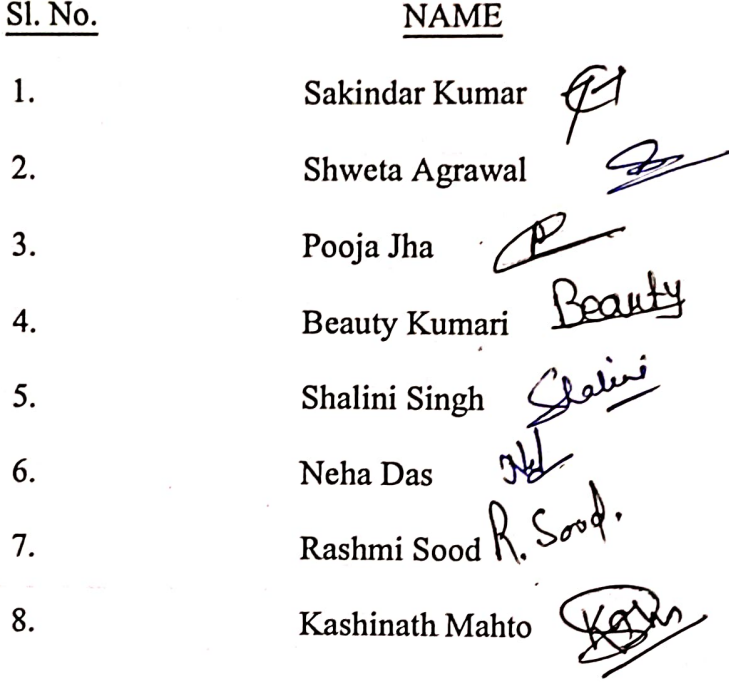 Sl. No. NAME
1. Sakindar Kumar
2. Shweta Agrawal
3. Pooja Jha P
4. Beauty Kumari Beauty
5. Shalini Singh Shalini
6. Neha Das
7. Rashmi Sood R. Sood.
8. Kashinath Mahto